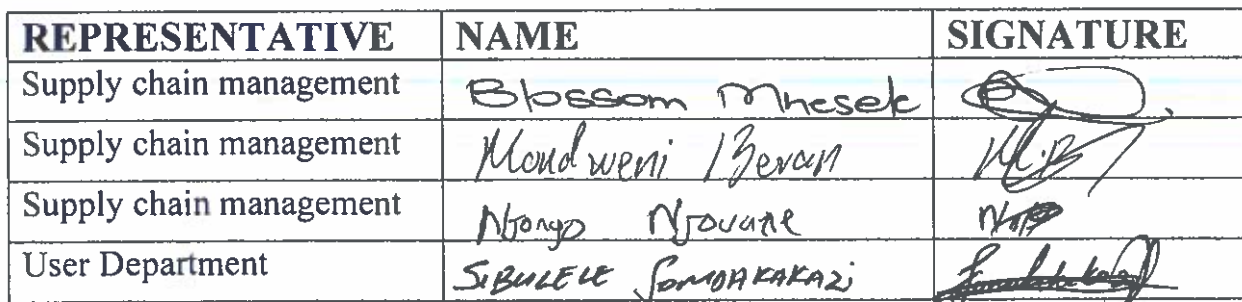 REPRESENTATIVE NAME SIGNATURE
Supply chain management Blossom Mnesele
Supply chain management Mondweni Bevan M.B
Supply chain management
User Department SIBULELE